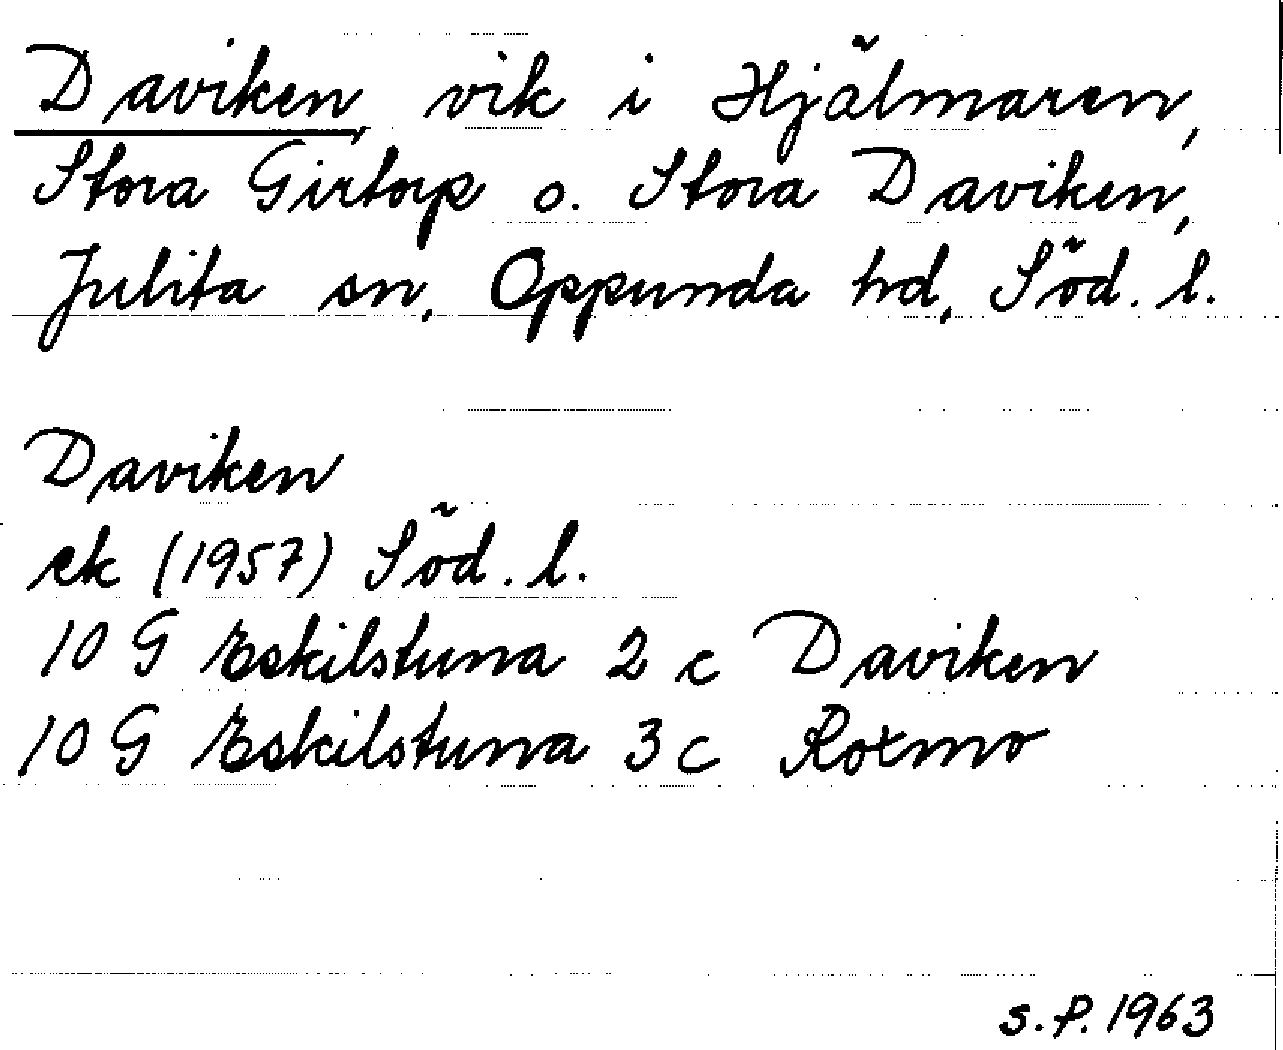 Daviken, vik i Hjälmaren,
Stora Girtorp o. Stora Daviken,
Julita sn, Oppunda hd, Söd. l.
Daviken
ek (1957) Söd. l.
10 G Eskilstuna 2 c Daviken
10 G Eskilstuna 3 c Roxmo
s.P. 1963